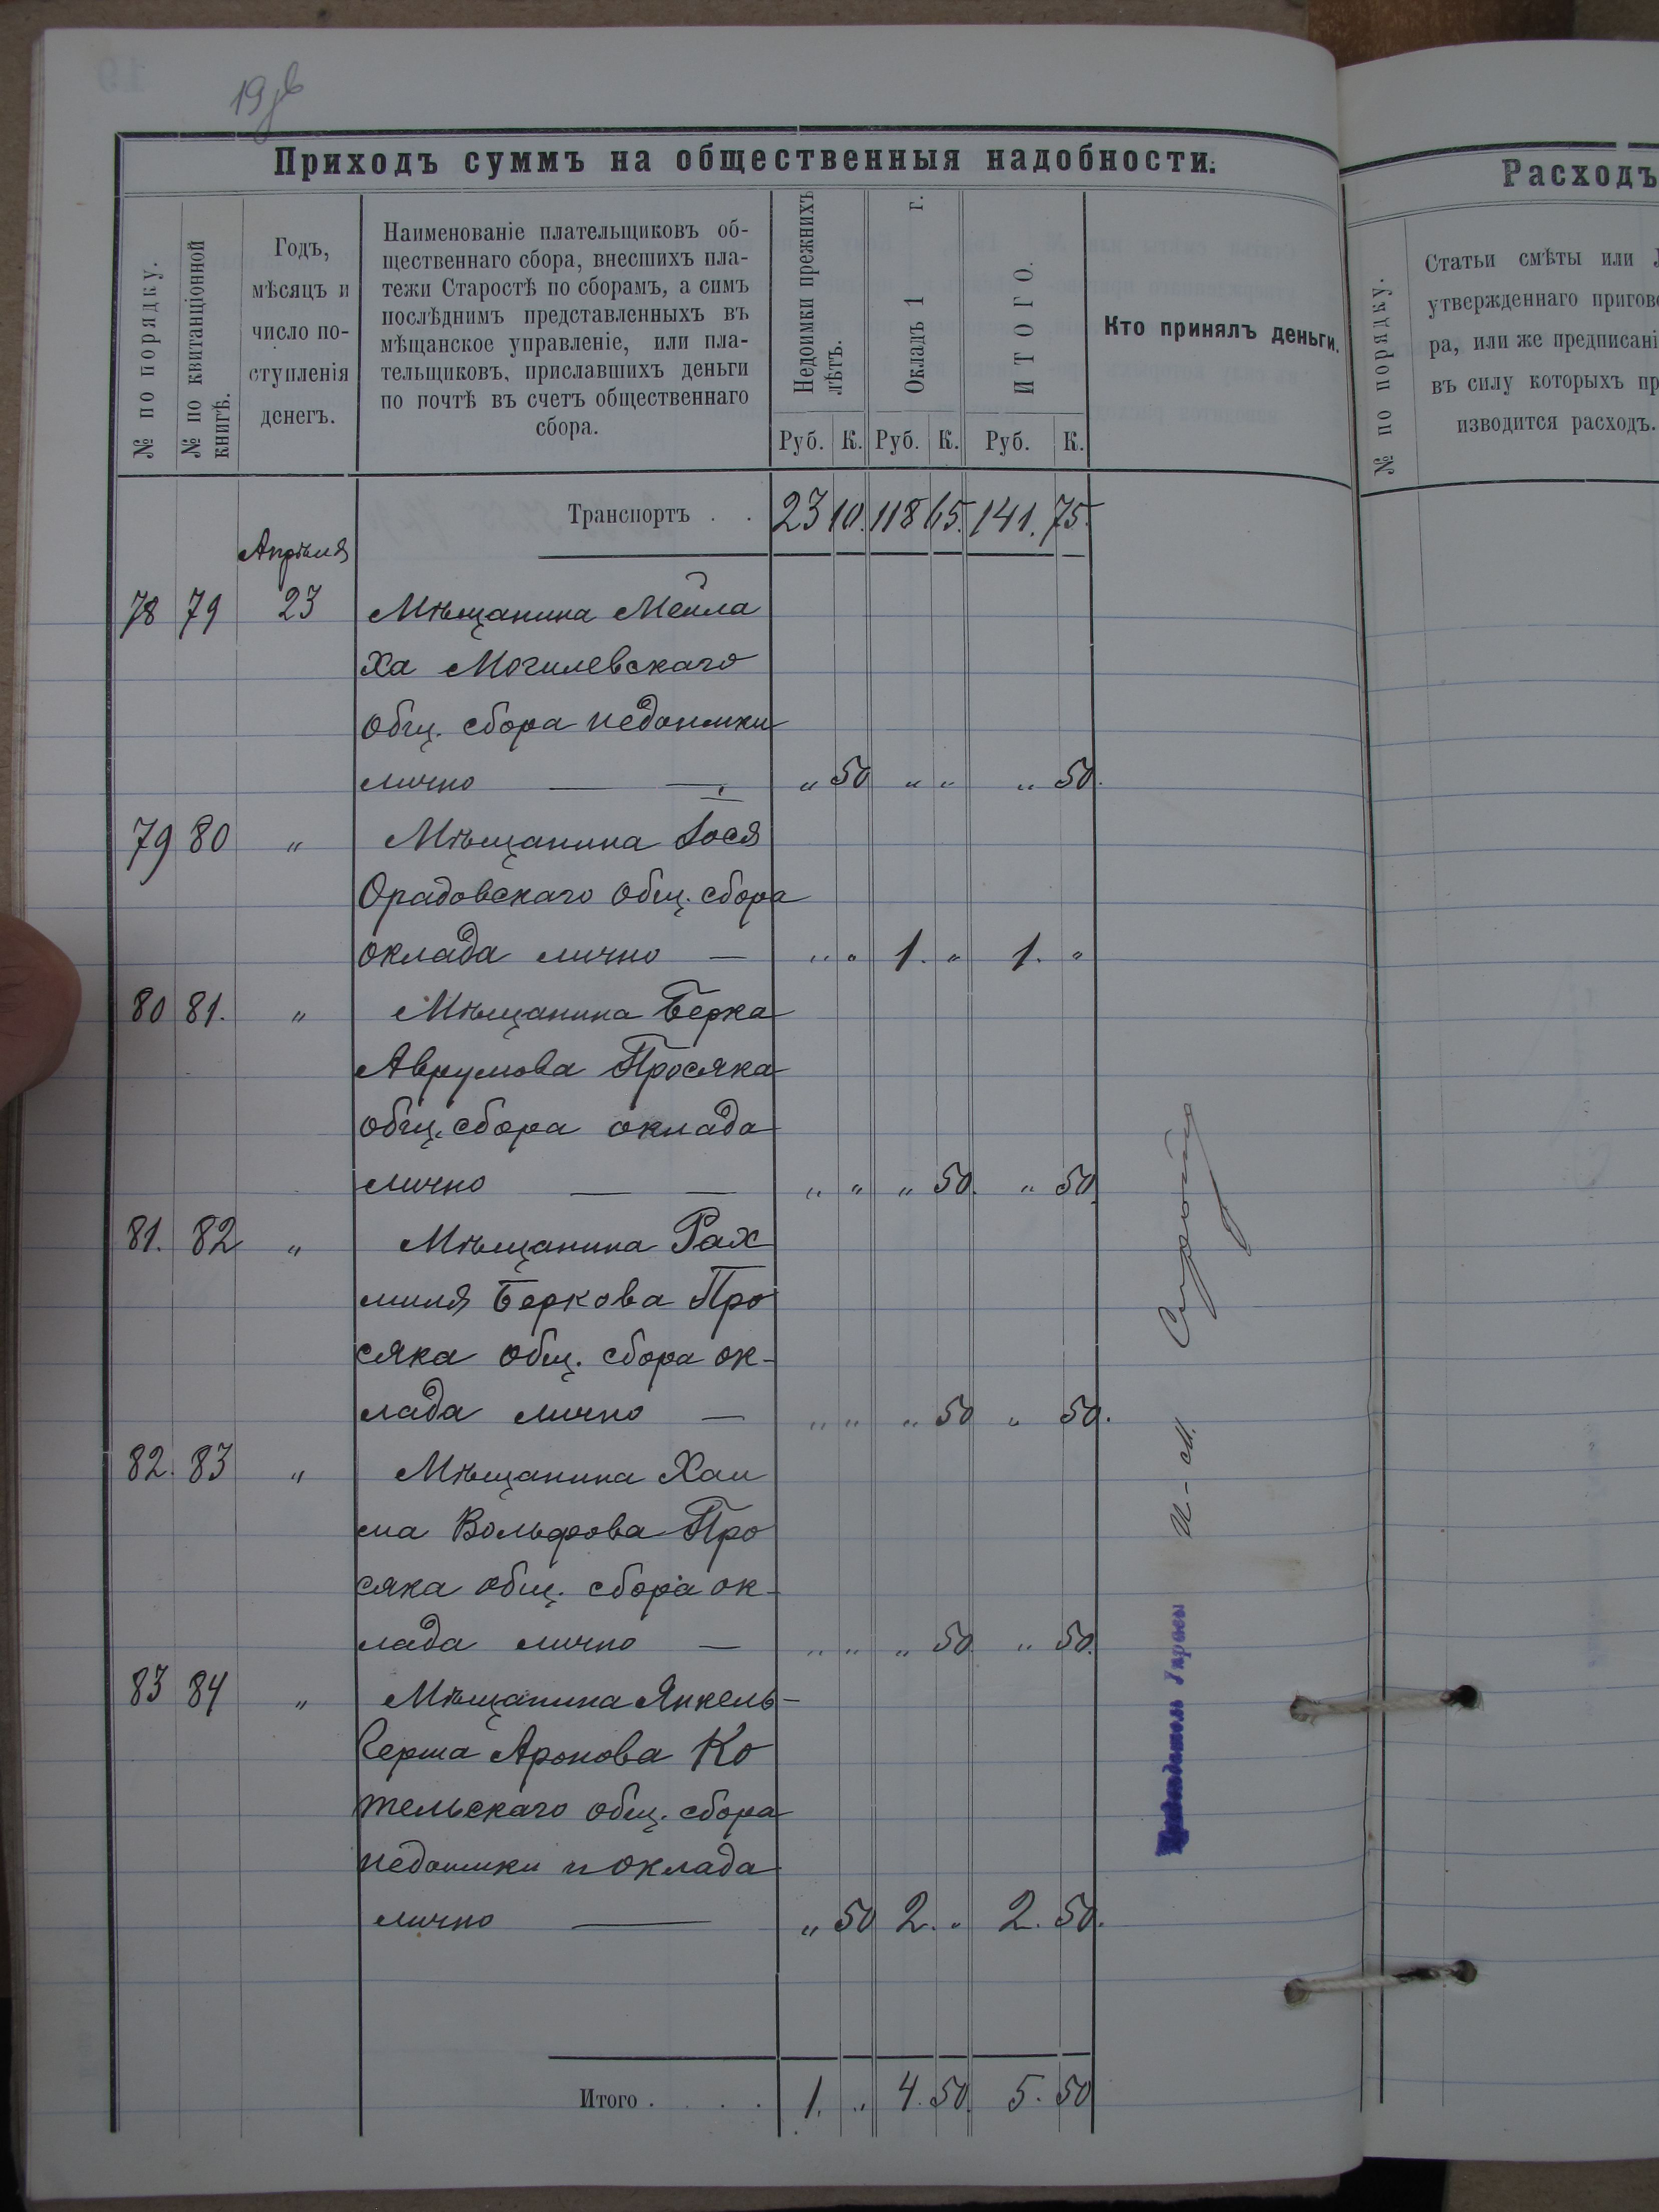 19
Приходъ суммъ на общественныя надобности.
№ по порядку.
№ по квитанціонной
книгѣ.
Годъ,
мѣсяцъ и
число по-
ступленія
денегъ.
Наименованіе плательщиковъ об-
щественнаго сбора, внесшихъ пла-
тежи Старостѣ по сборамъ, а симъ
послѣднимъ представленныхъ въ
мѣщанское управленіе, или пла-
тельщиковъ, приславшихъ деньги
по почтѣ въ счетъ общественнаго
сбора.
Недоимки прежнихъ
лѣтъ.
Окладъ 1 г.
ИТОГО.
Кто принялъ деньги.
Руб. К. Руб. К. Руб. К.
Транспортъ . . 23 10. 118 65. 141. 75.
Апрѣля
78 79 23 Мѣщанина Мейла
ха Могилевскаго
общ. сбора недоимки
лично — — „ 50 „ „ „ 50.
79 80 „ Мѣщанина Іося
Орадовскаго общ. сбора
оклада лично — „ „ 1. „ 1. „
80 81. „ Мѣщанина Берка
Аврумова Просяка
общ. сбора оклада
лично — — „ „ „ 50. „ 50.
81. 82 „ Мѣщанина Рах
миля Беркова Про
сяка общ. сбора ок-
лада лично — „ „ „ 50 „ 50.
82. 83 „ Мѣщанина Хаи
ма Вольфова Про
сяка общ. сбора ок-
лада лично — „ „ „ 50. „ 50.
83 84 „ Мѣщанина Янкель-
Герша Аронова Ко
тельскаго общ. сбора
недоимки и оклада
лично — „ 50 2. „ 2. 50.
Итого . . . . 1. „ 4. 50. 5. 50
И-М.
Расходъ
№ по порядку.
Статьи смѣты или
утвержденнаго пригов
ра, или же предписані
въ силу которыхъ пр
изводится расходъ.